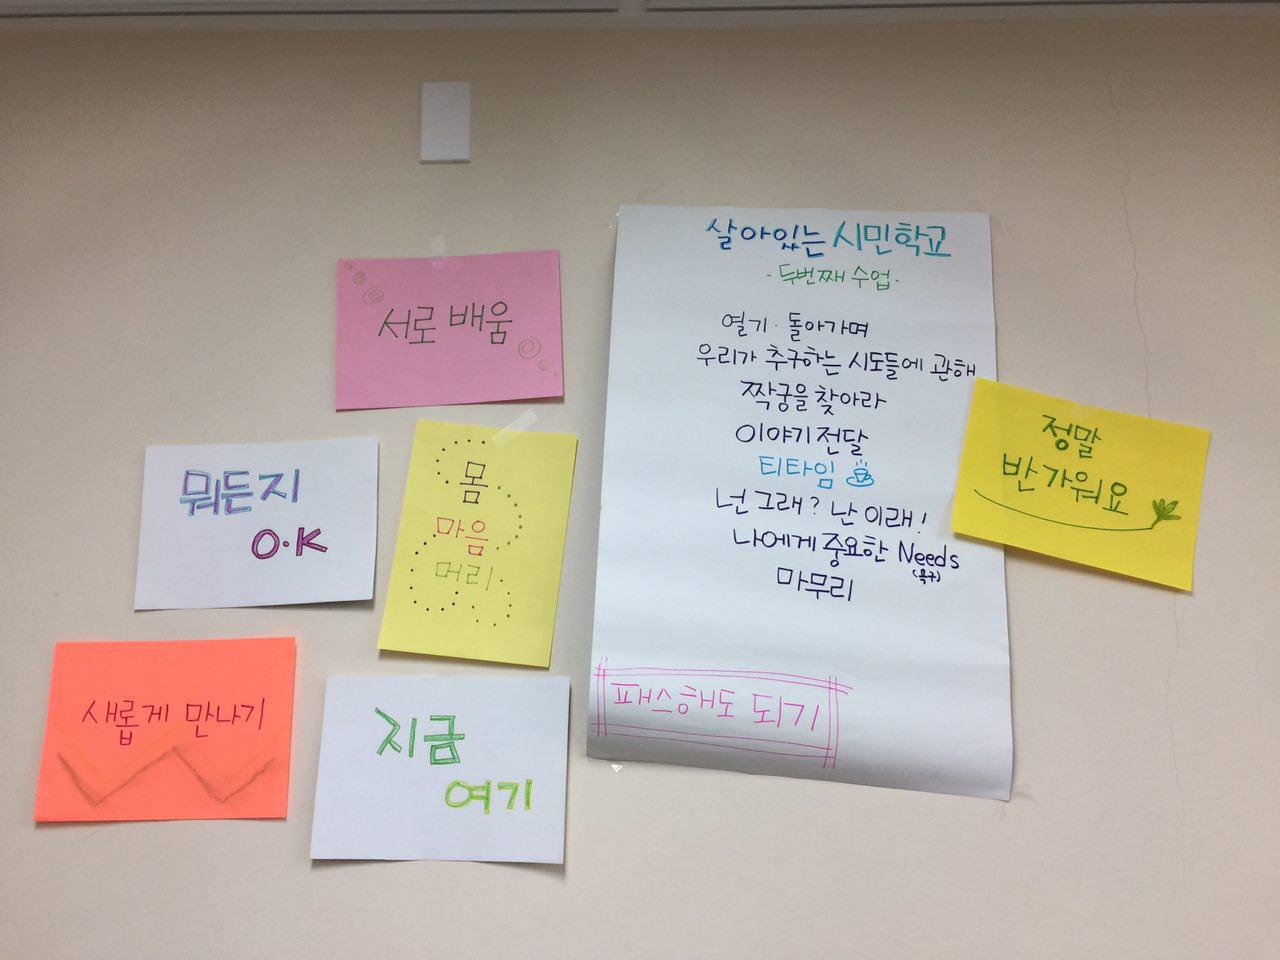 서로 배움
뭐든지
O.K
몸
마음
머리
새롭게 만나기
지금
여기
살아있는 시민학교
- 두번째 수업 -
열기 · 돌아가며
우리가 추구하는 시도들에 관해
짝궁을 찾아라
이야기 전달
티타임
넌 그래? 난 이래!
나에게 중요한 Needs
(욕구)
마무리
패스해도 되기
정말
반가워요